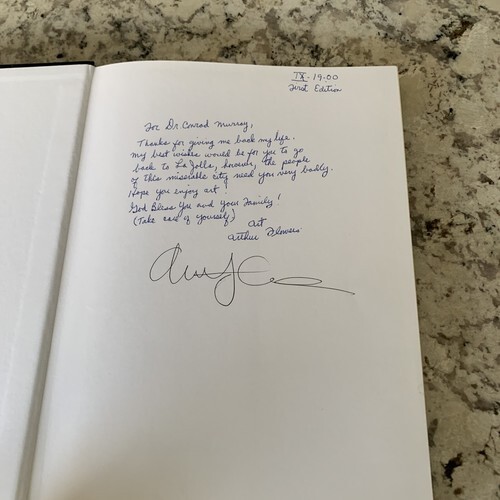 IX-19-00
First Edition
For Dr. Conrad Murray,
Thanks for giving me back my life.
My best wishes would be for you to go
back to La Jolla, however, the people
of this miserable city need you very badly.
Hope you enjoy art
God Bless You and your Family!
(Take care of yourself)
Art
Arthur